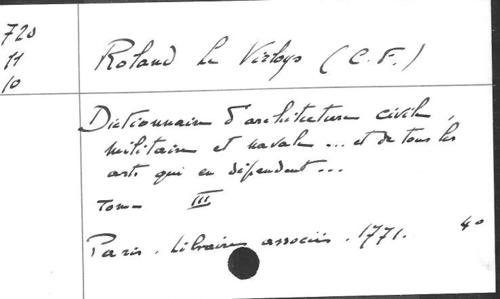 720
11
10
Roland Le Virloys (C.F.)
Dictionnaire d'architecture civile,
militaire et navale ... et de tous les
arts qui en dépendent ...
Tome III
Paris. Libraires associés. 1771. 4°